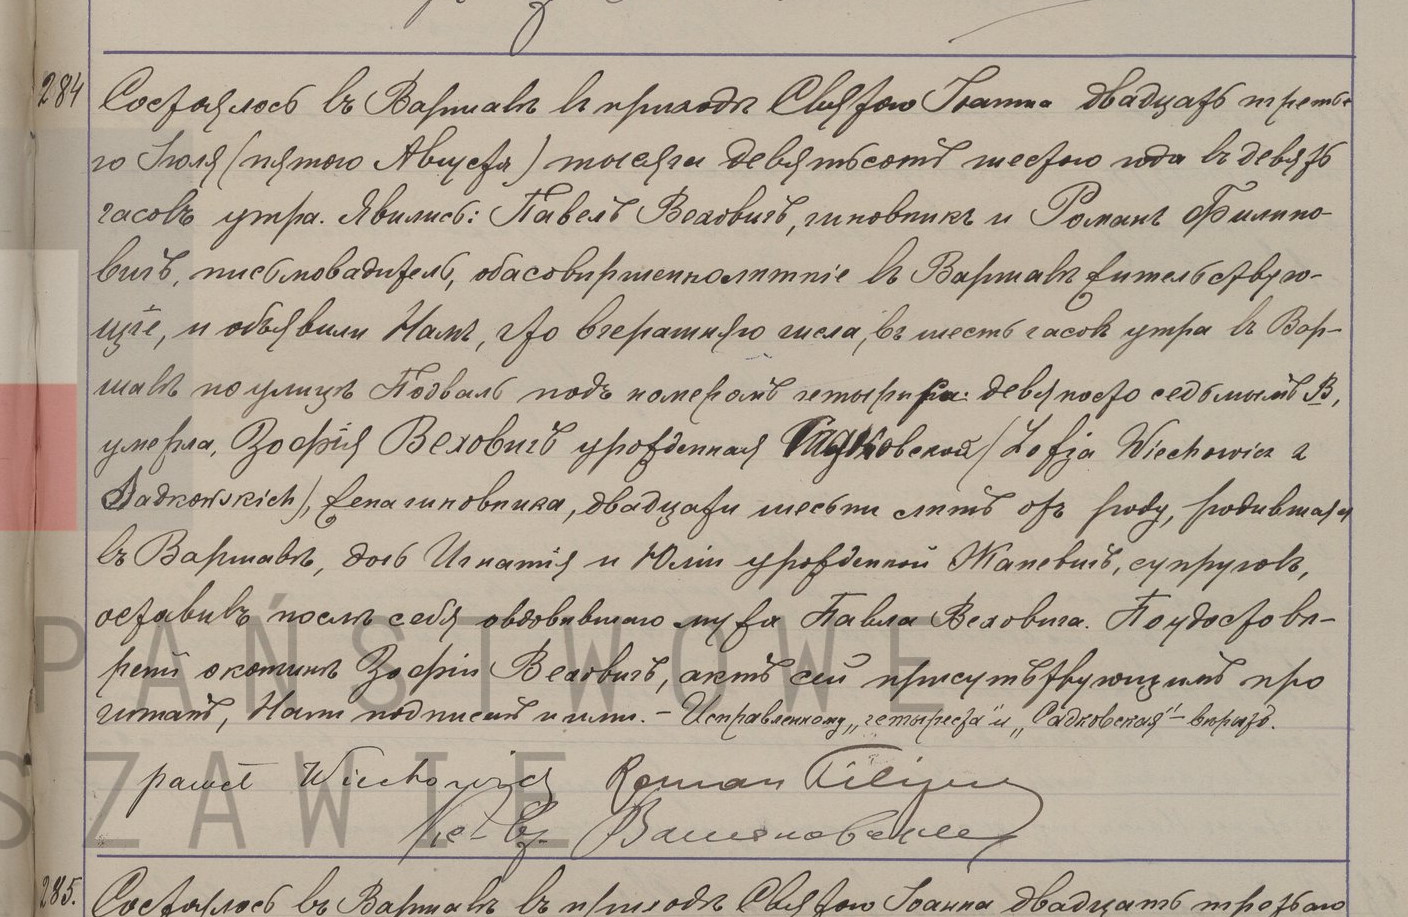 284 Состоялось въ Варшавѣ въ приходѣ Святого Іоанна двадцать третье-
го Іюля (пятого Августа) тысяча девятьсотъ шестого года въ девять
часовъ утра. Явились: Павелъ Веховичъ, чиновникъ и Романъ Филипо-
вичъ, письмоводитель, оба совершеннолѣтніе въ Варшавѣ жительствую-
щіе, и объявили Намъ, что вчерашняго числа, въ шесть часовъ утра въ Вар-
шавѣ по улицѣ Подваль подъ номеромъ четыреста девяносто седьмымъ В,
умерла, Зофія Веховичъ урожденная Садковская /Zofja Wiechowicz z
Sadkowskich/, жена чиновника, двадцати шести лѣтъ отъ роду, родившаяся
въ Варшавѣ, дочь Игнатія и Юліи урожденной Жапевичъ, супруговъ,
оставивъ послѣ себя овдовѣвшаго мужа Павла Веховича. По удостовѣ-
реніи о кончинѣ Зофіи Веховичъ, актъ сей присутствующимъ про
читанъ, Нами подписанъ и ими. – Исправленному „четыреста" и „Садковская" – вѣрить.
paweł Wiechowicz Roman Filipow
285. Состоялось въ Варшавѣ въ приходѣ Святого Іоанна двадцать третьяго
PAŃSTWOWE
SZAWIE